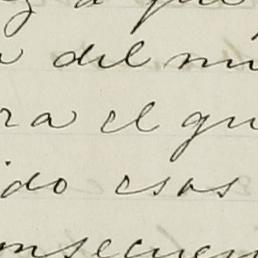 y a que
a del mi
ra el qu
ido esas
onsecuen